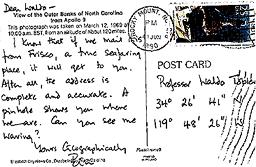 Dear Waldo -
View of the Outer Banks of North Carolina
from Apollo 9
This photograph was taken on March 12, 1969 at
10:00a.m. EST, from an altitude of about 120 miles.
I know that if we mail
from Frisco, a true seafaring
place, it will get to you
After all, the address is
complete and accurate. A
pinhole shows you where
we are. Can you see me
waving?
Yours Geographically
ROCKY MOUNT, N.C.
PM
1990
POST CARD
Professor Waldo Tobler
34° 26' 41" N
119° 48' 26" W